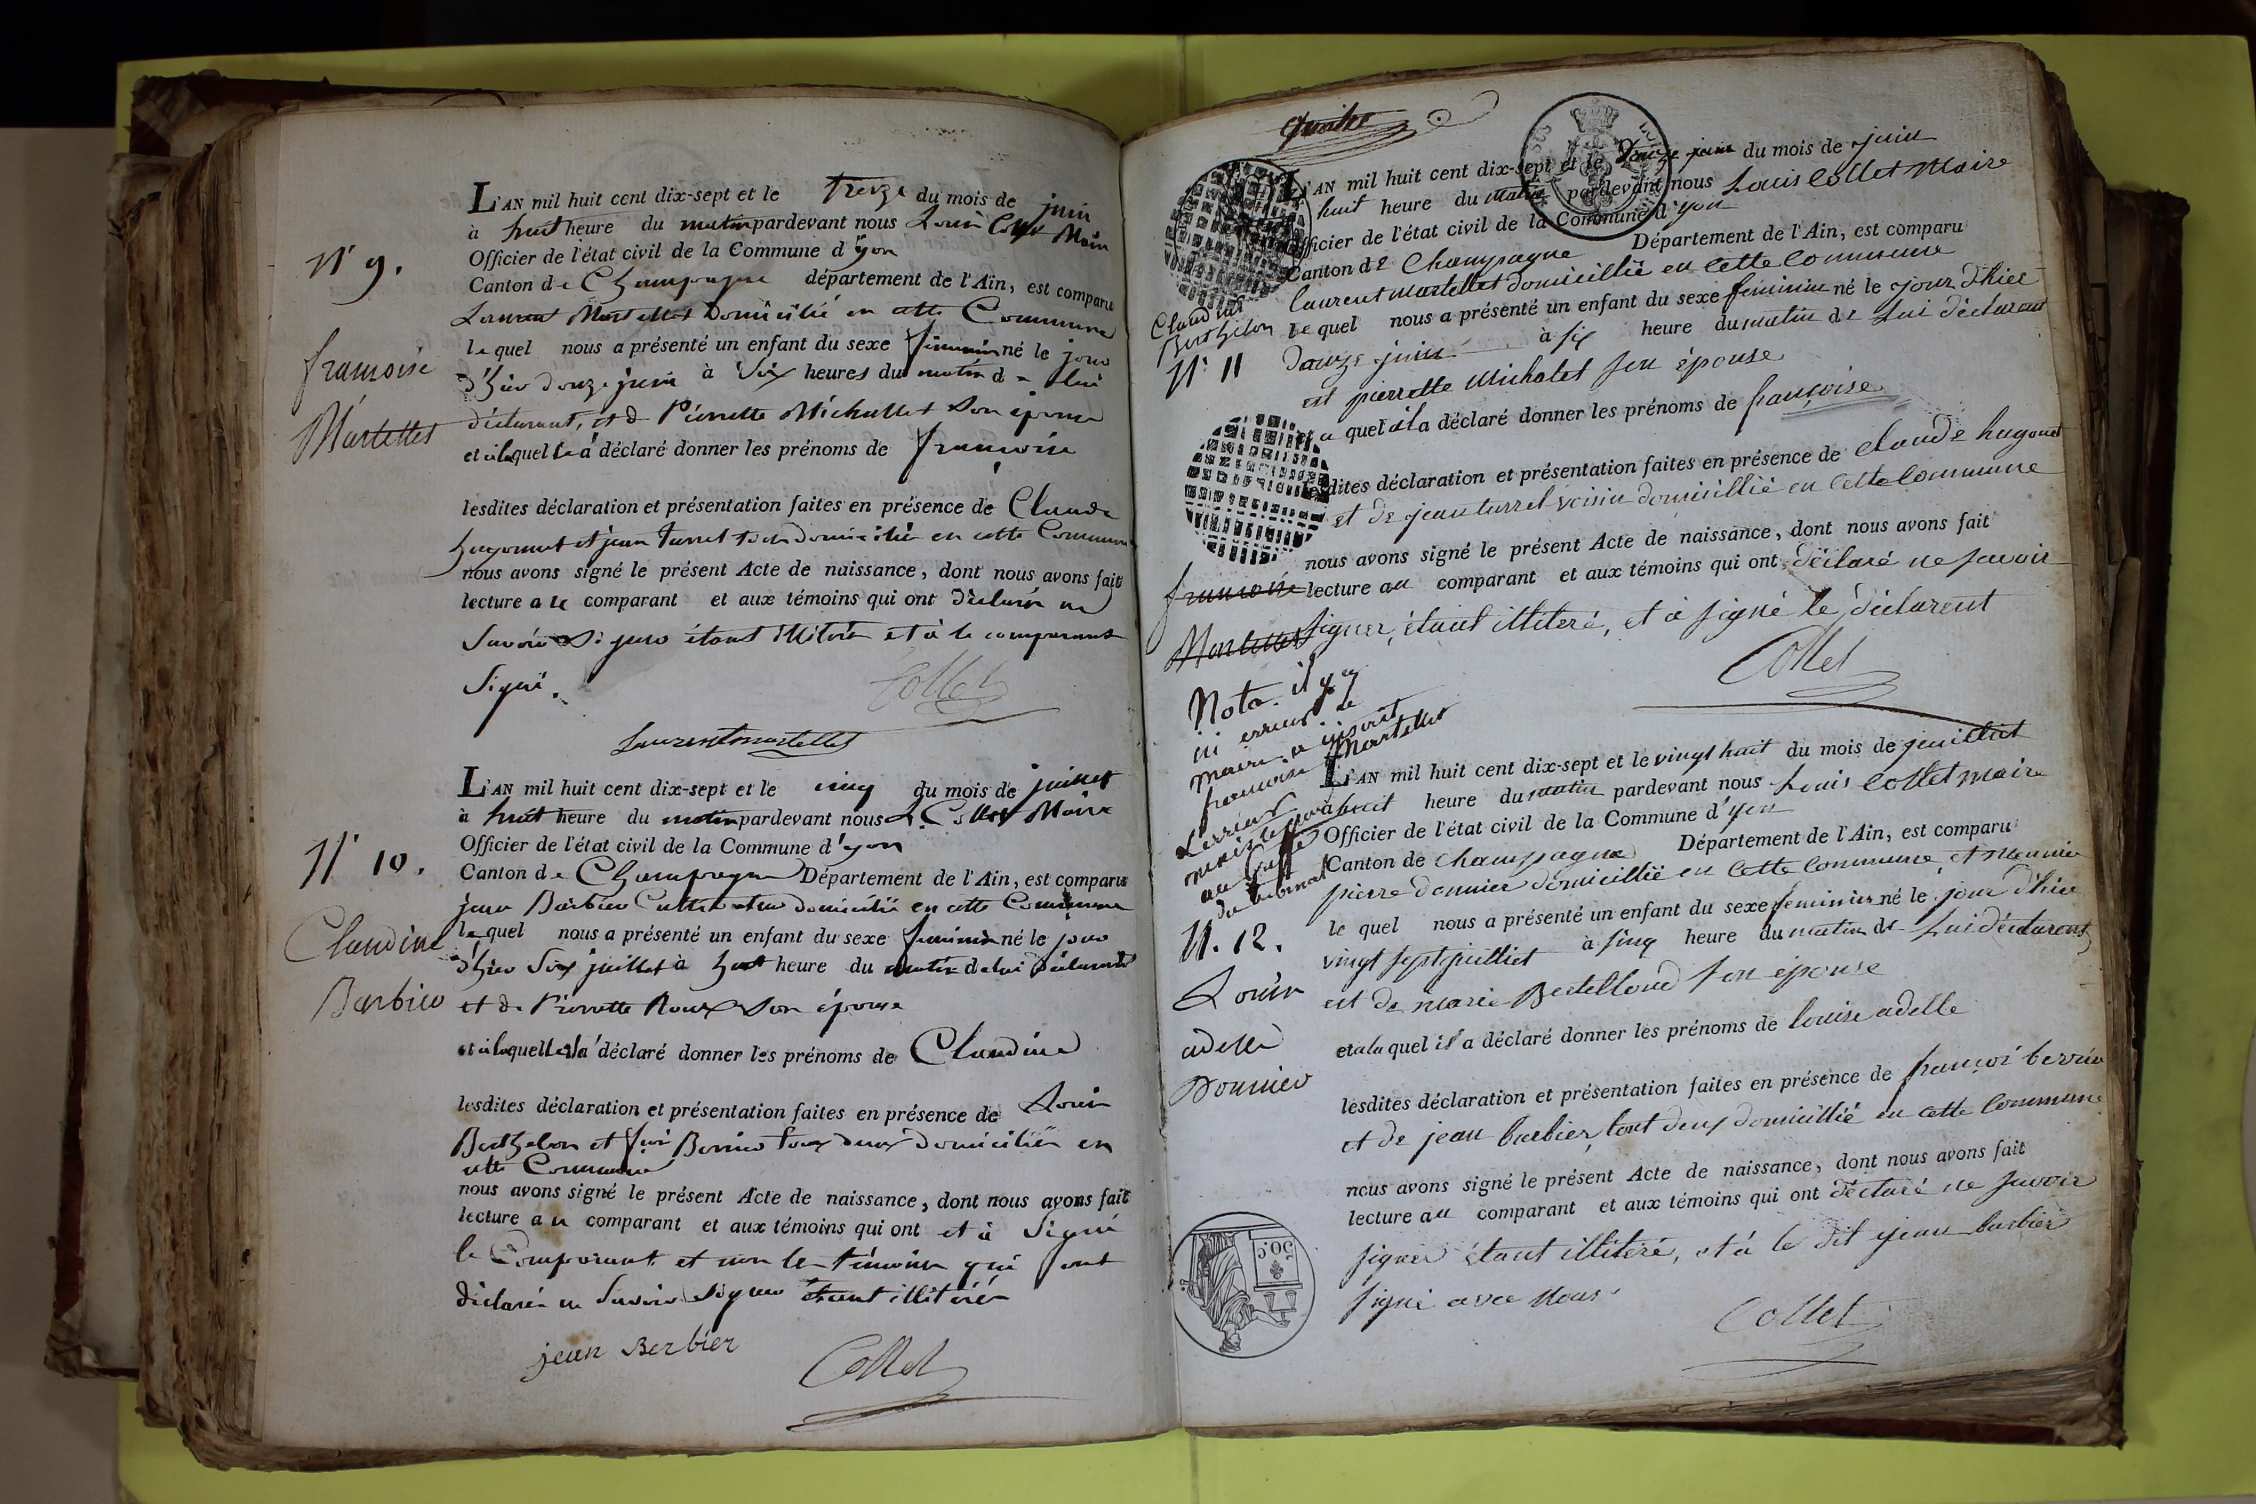 N° 9.
françoise
Martellet
L'AN mil huit cent dix-sept et le treize du mois de juin
à huit heure du matin pardevant nous Louis Collet Maire
Officier de l'état civil de la Commune d'yon
Canton de Champagne département de l'Ain, est comparu
Laurent Martellet Domicilié en cette Commune
lequel nous a présenté un enfant du sexe féminin né le jour
d'hier douze juin à Six heures du matin de lui
déclarant, et de Pierrette Michallet Son épouse
et à laquelle a déclaré donner les prénoms de françoise
lesdites déclaration et présentation faites en présence de Claude
hugonnet et jean Turret domicilié en cette Commune
nous avons signé le présent Acte de naissance, dont nous avons fait
lecture au comparant et aux témoins qui ont déclaré ne
Savoir Signer étant illitéré et à le comparant
Signé.
Collet
Laurent martellet
N° 10.
Claudine
Barbier
L'AN mil huit cent dix-sept et le cinq du mois de juillet
à huit heure du matin pardevant nous L. Collet Maire
Officier de l'état civil de la Commune d'yon
Canton de Champagne Département de l'Ain, est comparu
jean Barbier Cultivateur domicilié en cette Commune
lequel nous a présenté un enfant du sexe féminin né le jour
d'hier Six juillet à huit heure du matin de lui déclarant
et de Pierrette Roux Son épouse
et à laquelle il a déclaré donner les prénoms de Claudine
lesdites déclaration et présentation faites en présence de Louis
Berthelon et Bernier tous deux domiciliés en
cette Commune
nous avons signé le présent Acte de naissance, dont nous avons fait
lecture au comparant et aux témoins qui ont et à Signé
le Comparant et non les témoins qui ont
déclaré ne Savoir Signer étant illitérés
jean Berbier
Collet
L'AN mil huit cent dix-sept et le du mois de juin
huit heure du matin pardevant nous Louis Collet Maire
Officier de l'état civil de la Commune d'yon
Canton de Champagne Département de l'Ain, est comparu
laurent martellet domicillié en cette commune
Claudine
Berthelon
N° 11
lequel nous a présenté un enfant du sexe feminin né le jour d'hier
douze juin à six heure du matin de Lui déclarant
est pierrette Michalet son épouse
et a quel il a déclaré donner les prénoms de françoise
lesdites déclaration et présentation faites en présence de claude hugonet
et de jean turret voisin domicillié en cette commune
nous avons signé le présent Acte de naissance, dont nous avons fait
françoise
lecture au comparant et aux témoins qui ont déclaré ne savoir
Martellet
signer, étant illiteré, et à signé le déclarent
Collet
Nota. il y a
ici erreur. le
maire a inscrit
françoise Martellet
L'erreur
au Greffe
du tribunal
L'AN mil huit cent dix-sept et le vingt huit du mois de jeuilliet
à huit heure du matin pardevant nous Louis Collet maire
Officier de l'état civil de la Commune d'yon
Canton de Champagne Département de l'Ain, est comparu
pierre donnier domicillié en cette commune et meunier
N. 12.
Louise
adelle
Donnier
le quel nous a présenté un enfant du sexe feminin né le jour d'hier
vingt sept juilliet à sinq heure du matin de Lui déclarent
est de marie Bertelloud son épouse
et a la quel il a déclaré donner les prénoms de louise adelle
lesdites déclaration et présentation faites en présence de françoi bernier
et de jean barbier, tout deux domicillié en cette commune
nous avons signé le présent Acte de naissance, dont nous avons fait
lecture au comparant et aux témoins qui ont déclaré ne savoir
signer étant illitéré, et à le dit jean barbier
signé avec Nous.
Collet
50.C